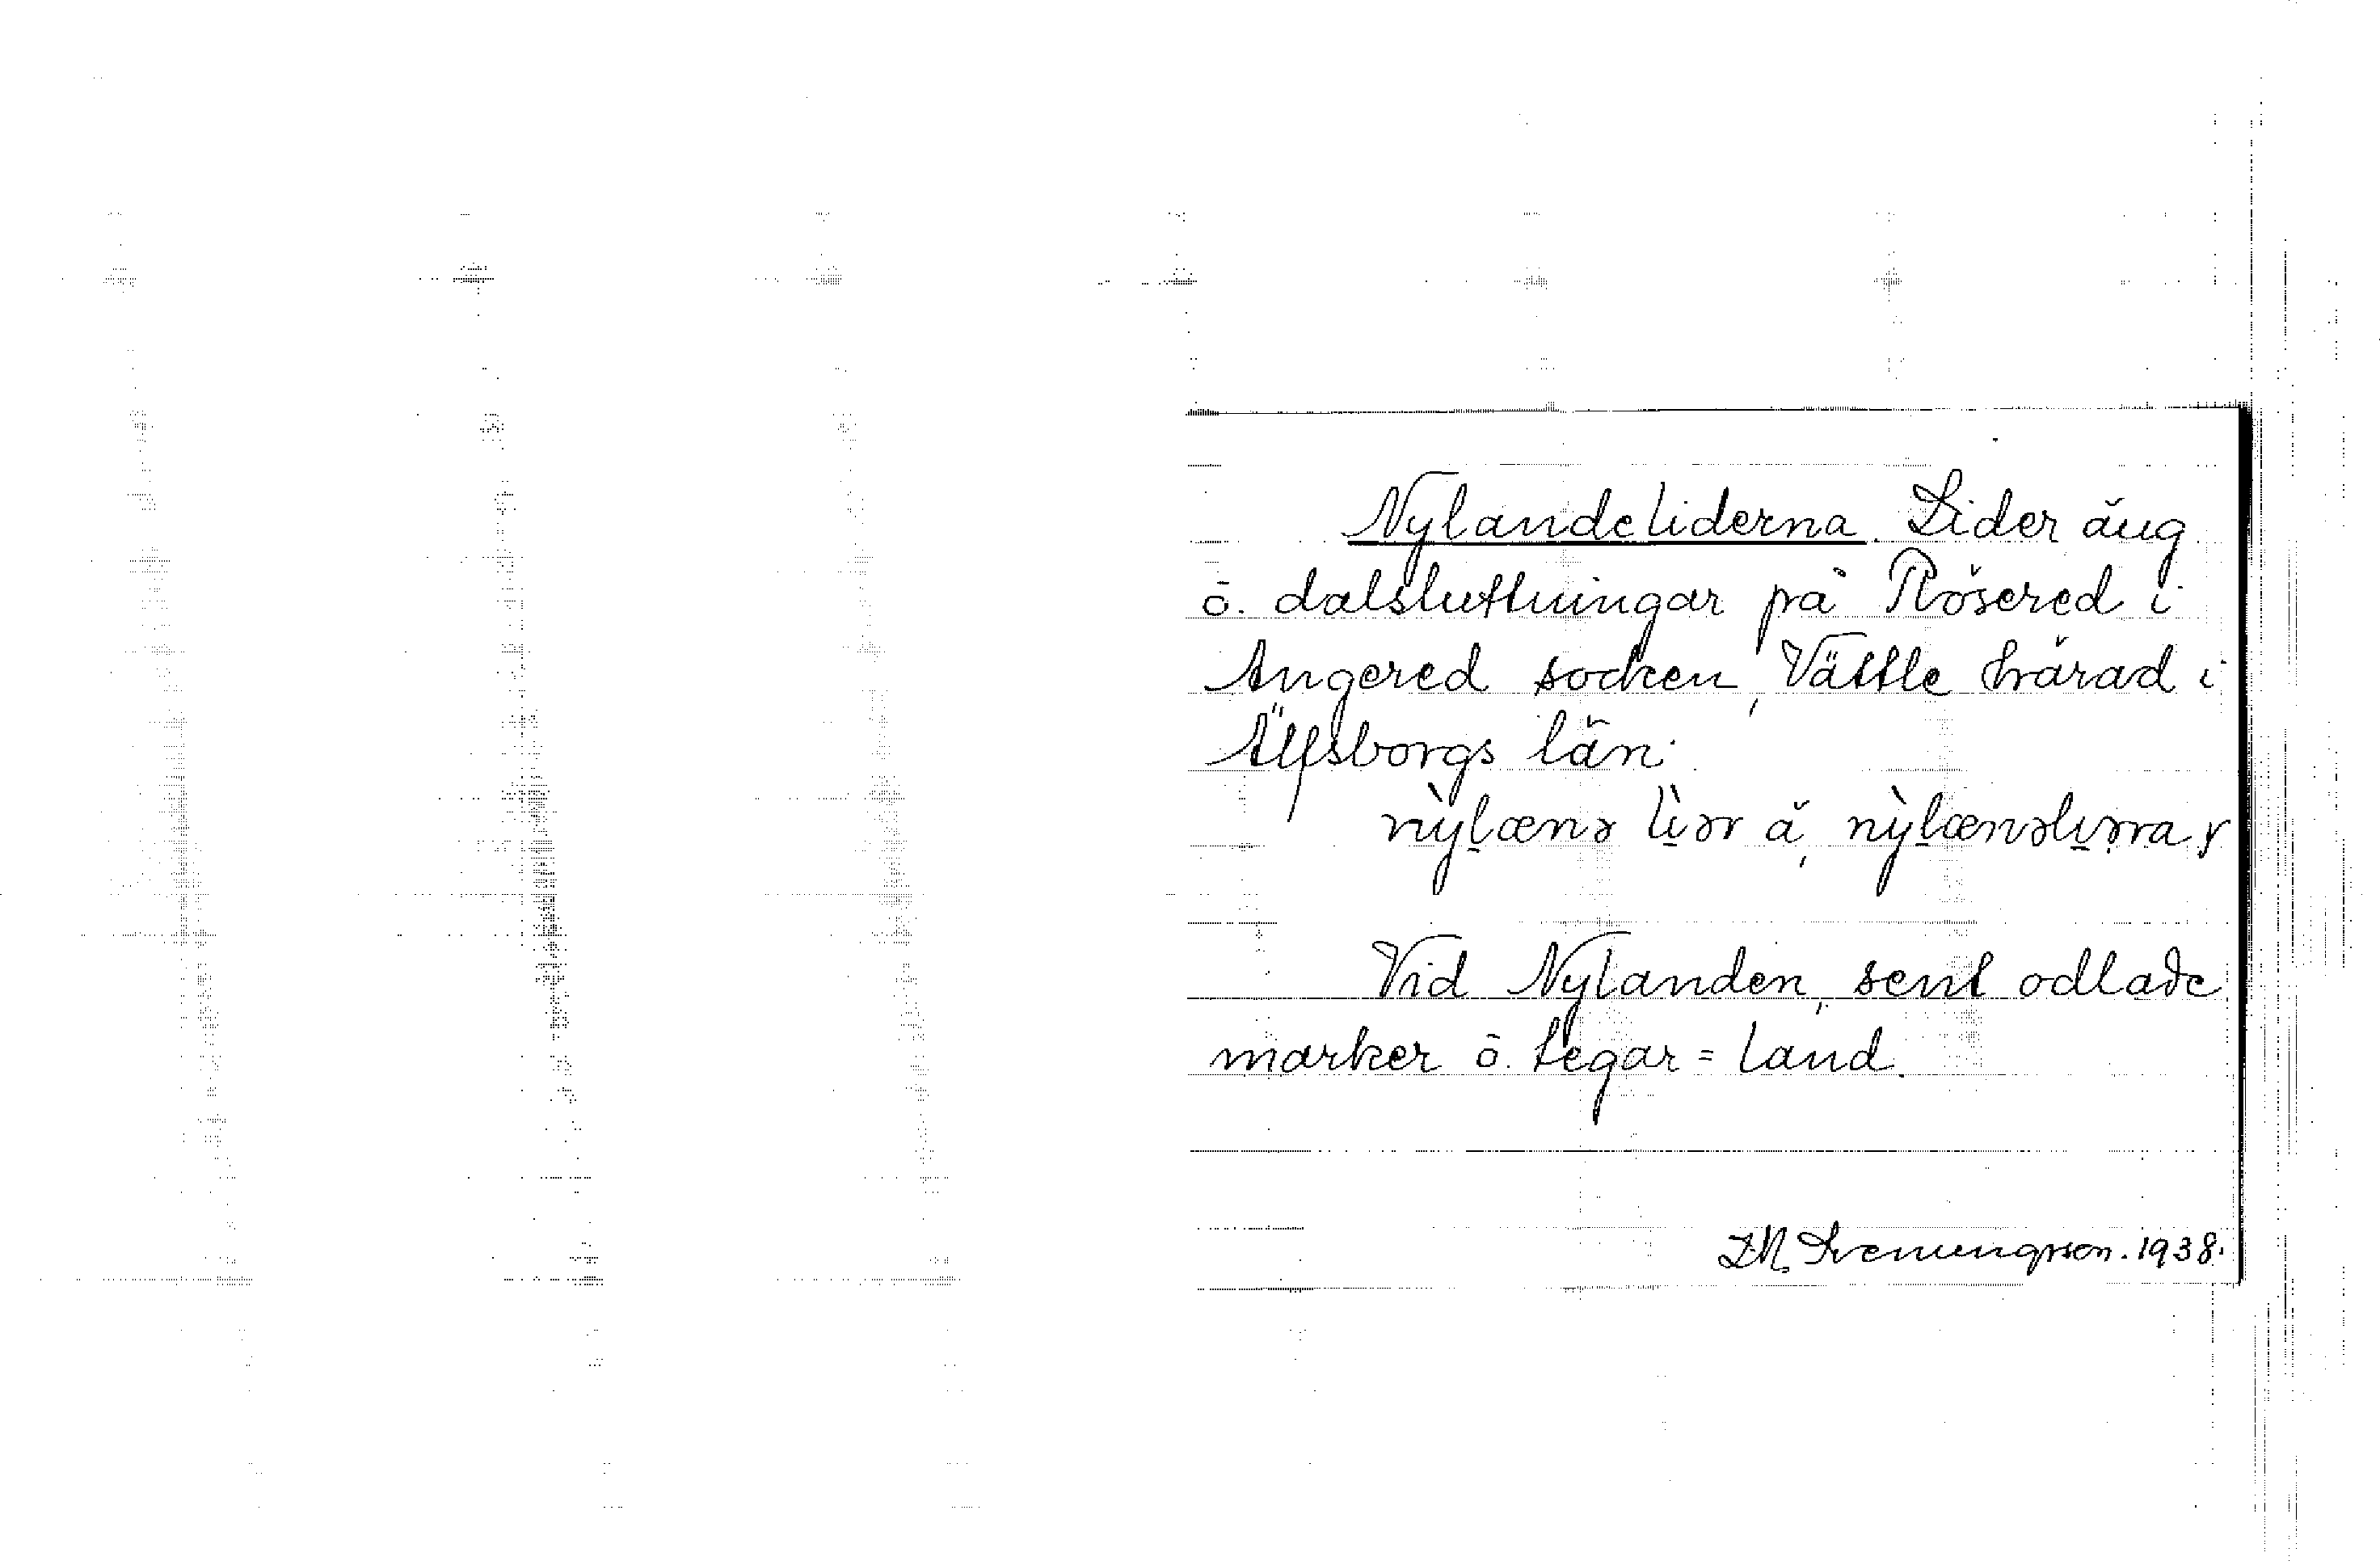 Nylandeliderna. Lider äng
ō. dalsluttningar på Rösered i
Angered socken, Vättle härad i
Älfsborgs län.
nỳlænə lìər å, nỳlænəlıərạ
Vid Nylanden, sent odlade
marker ō. tegar = land.
1938.